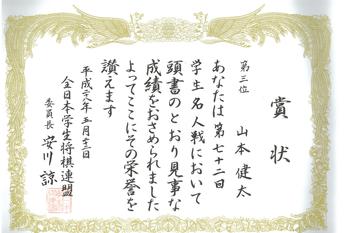 賞状
第三位
山本健太
あなたは第七十二回
学生名人戦において
頭書のとおり見事な
成績をおさめられました
よってここにその栄誉を
讃えます
平成二十八年五月二十二日
全日本学生将棋連盟
委員長 安川諒